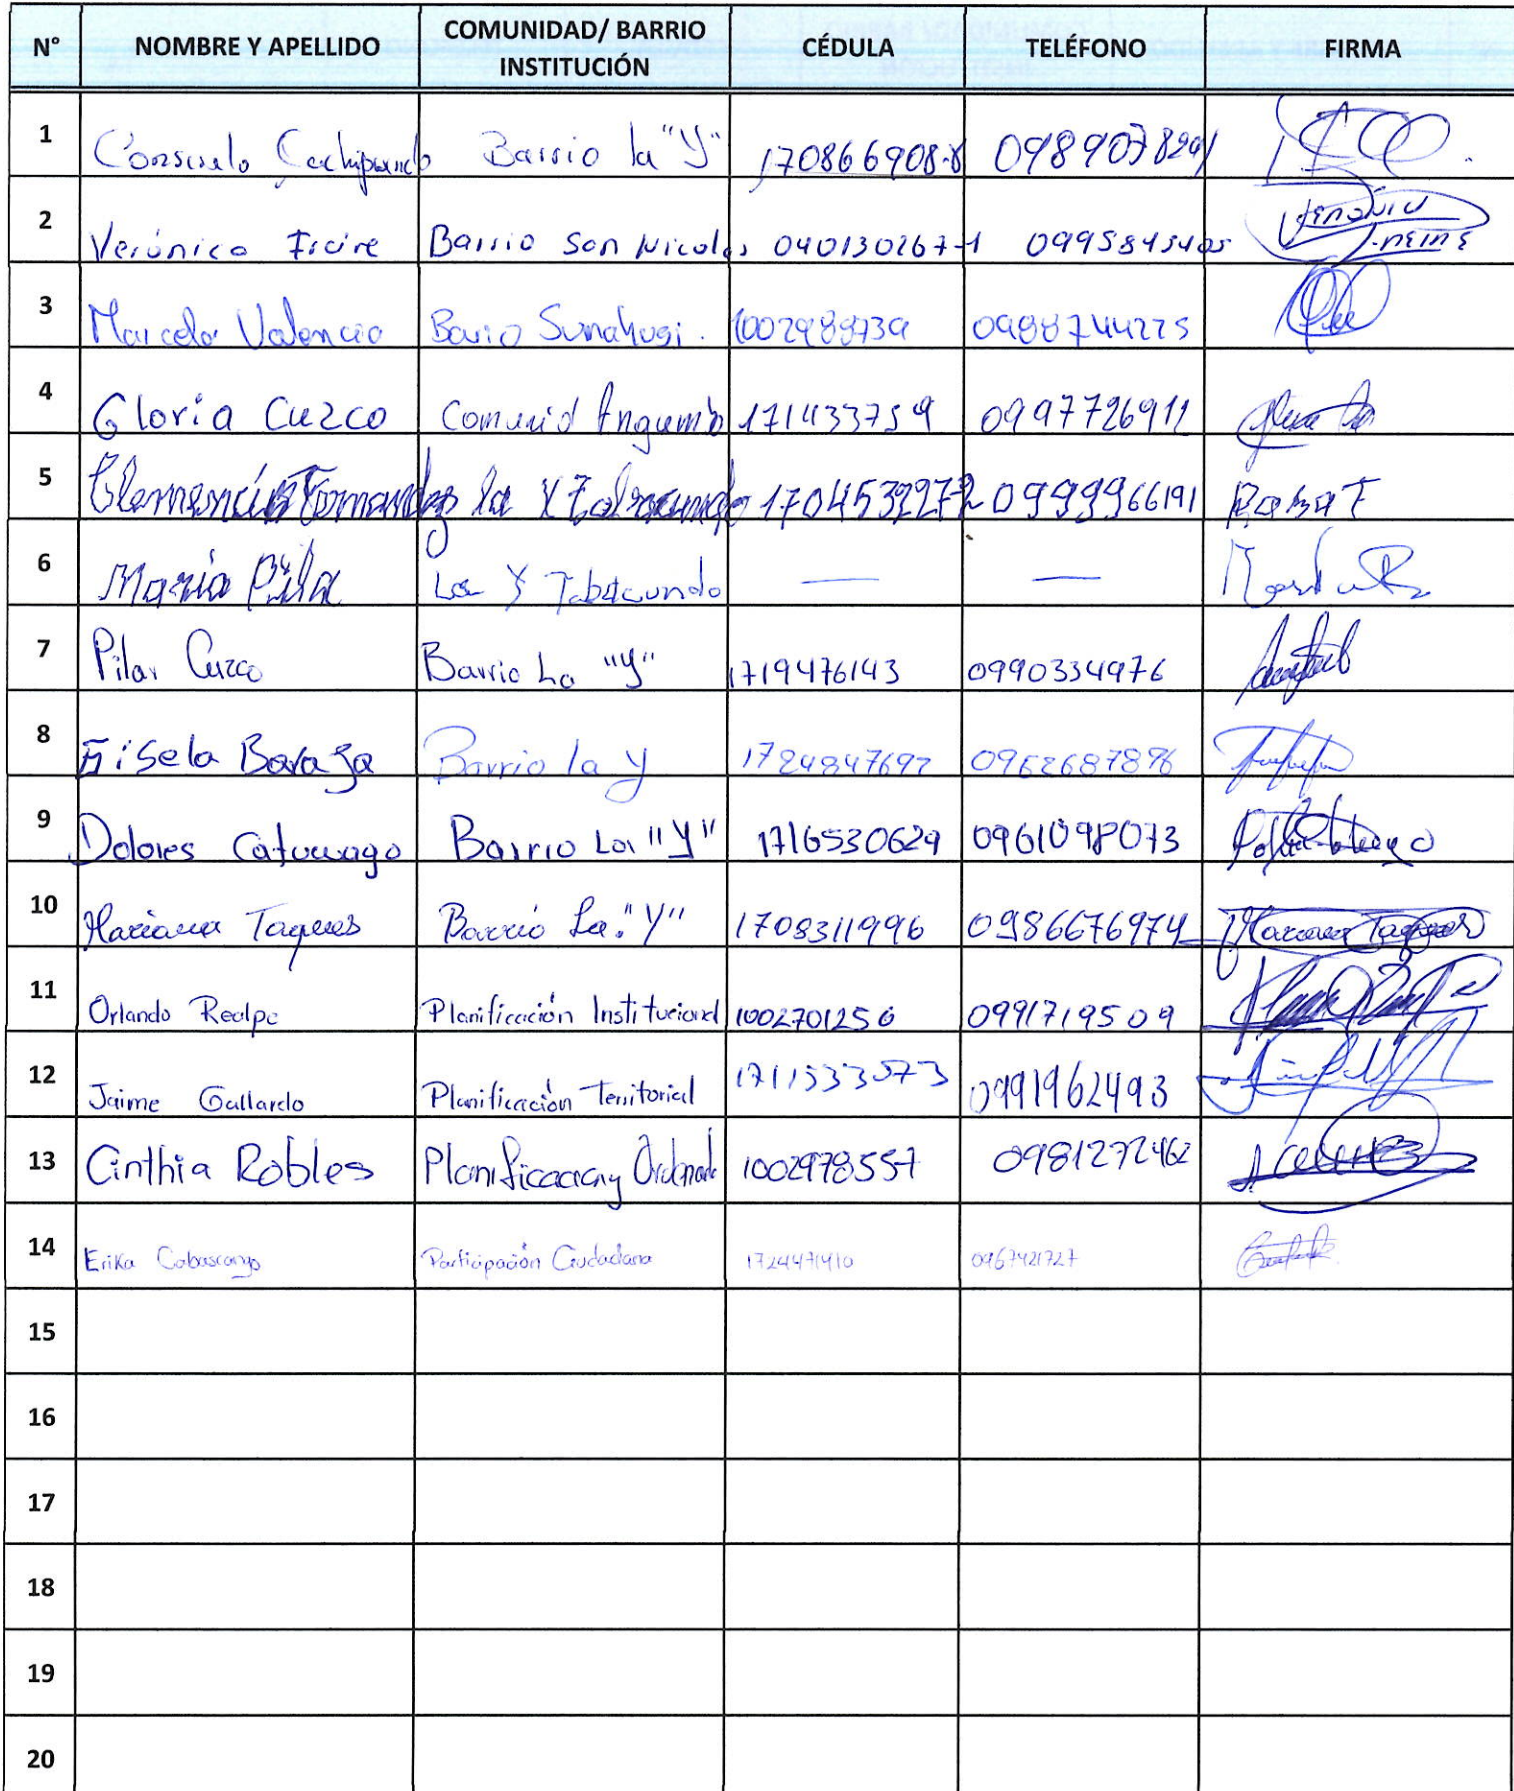 N° NOMBRE Y APELLIDO COMUNIDAD/ BARRIO INSTITUCIÓN CÉDULA TELÉFONO FIRMA
1 Consuelo Barrio la "Y" 170866908-8
2 Verónica Freire Barrio San Nicolas 040130267-1 0995845405 Verónica Freire
3 Marcela Valencia Barrio 0988744225
4 Gloria Cuzco Comunid Angumb 171433759 0997726911
5 la Y 0999966191 Rosa F
6 Maria Pila La Y Tabacundo — —
7 Pilar Cuzco Barrio La "Y" 1719476143 0990334976
8 Gisela Baraja Barrio la y 1724847697 0962687896
9 Dolores Catucuago Barrio La "Y" 1716530629 0961098073
10 Mariana Taques Barrio La "Y" 1708311996 0986676974 Mariana Taques
11 Orlando Realpe Planificación Institucional 1002701256 0991719509
12 Jaime Gallardo Planificación Territorial 1711533573 0991962493
13 Cinthia Robles 1002978557 0981272462
14 Erika Cabascango Participación Ciudadana 1724471410 0967421727
15
16
17
18
19
20